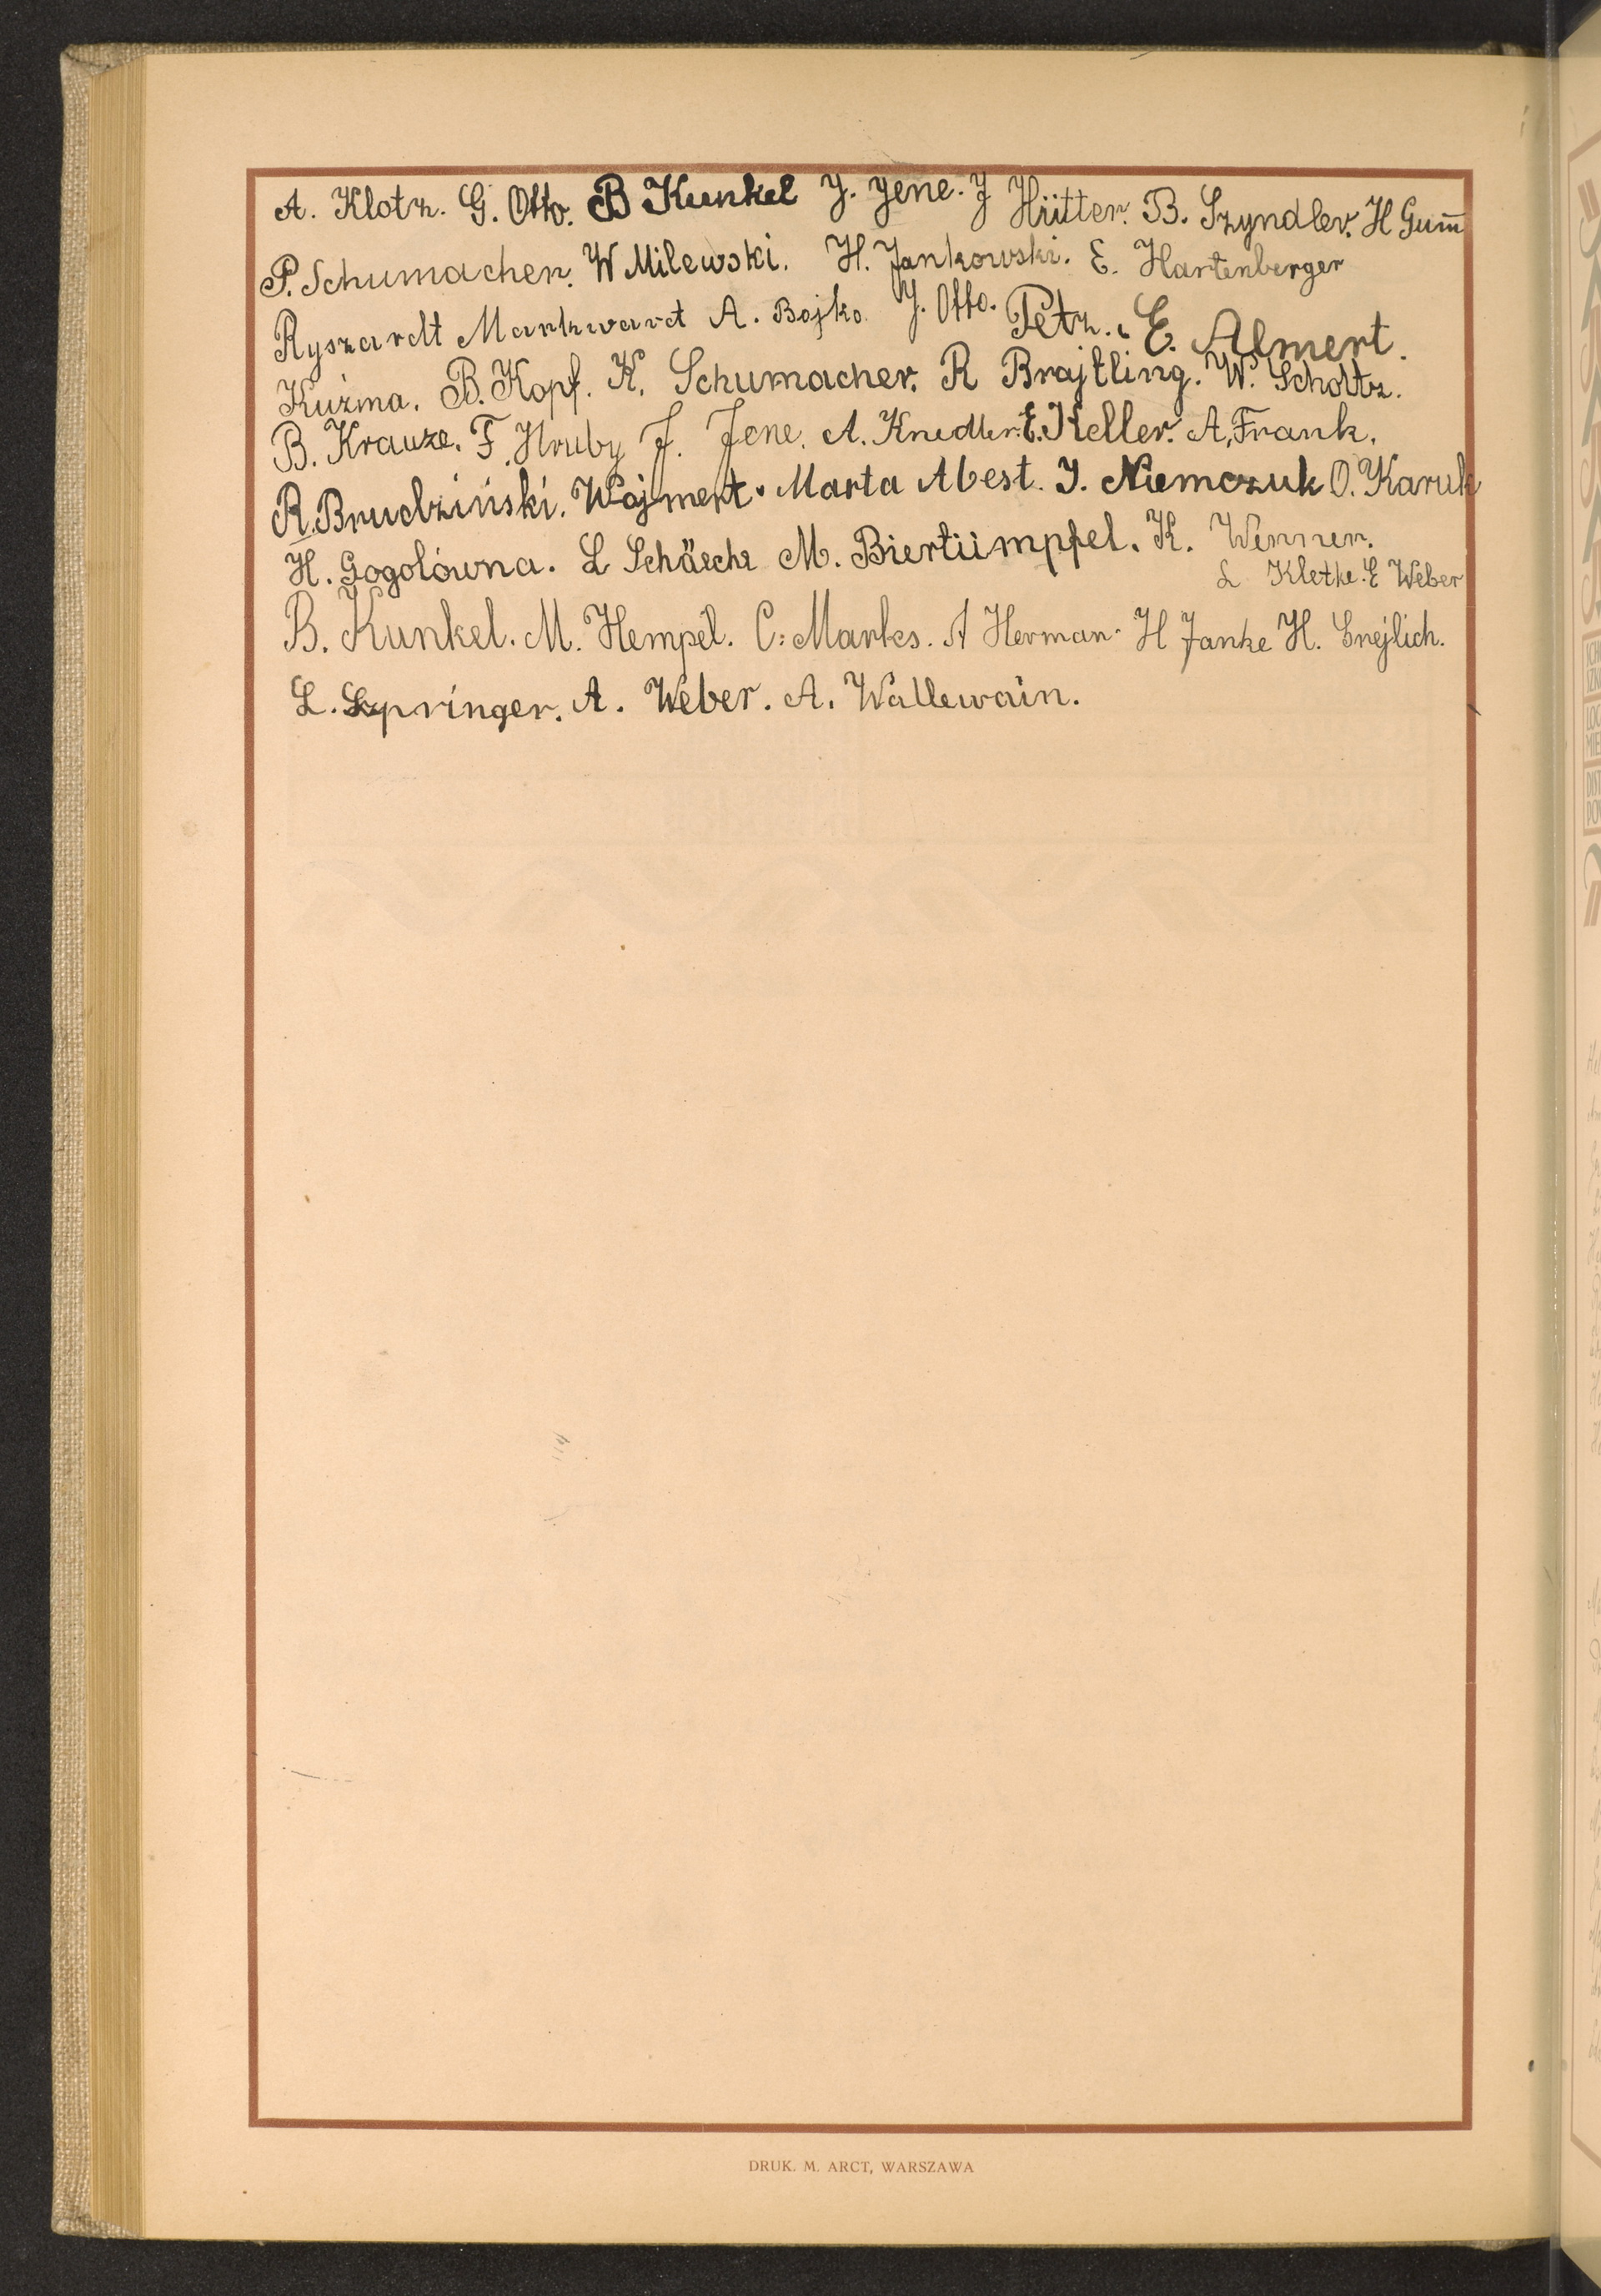 A. Klotz. G. Otto. B Kunkel J. Jene. J Hütter. B. Szyndler. H Gum̅
P. Schumacher. W Milewski. H. Jankowski. E. Hartenberger
Ryszardt Markwardt A. Bojko. J. Otto. Petz. E. Almert.
Kuźma. B. Kopf. K. Schumacher. R Brajtling. W. Scholtz.
B. Krauze. F. Hruby J. Jene. A. Knedler. E. Keller. A. Frank.
R. Brudziński. Wajmert. Marta Abest. J. Niemczuk O. Karuk
H. Gogolówna. L Schäeche M. Biertümpfel. K. Werner.
L Kletke. E Weber
B. Kunkel. M. Hempel. C. Marks. A Herman. H Janke H. Erejlich.
L. Szpringer. A. Weber. A. Wallewain.
DRUK. M. ARCT, WARSZAWA